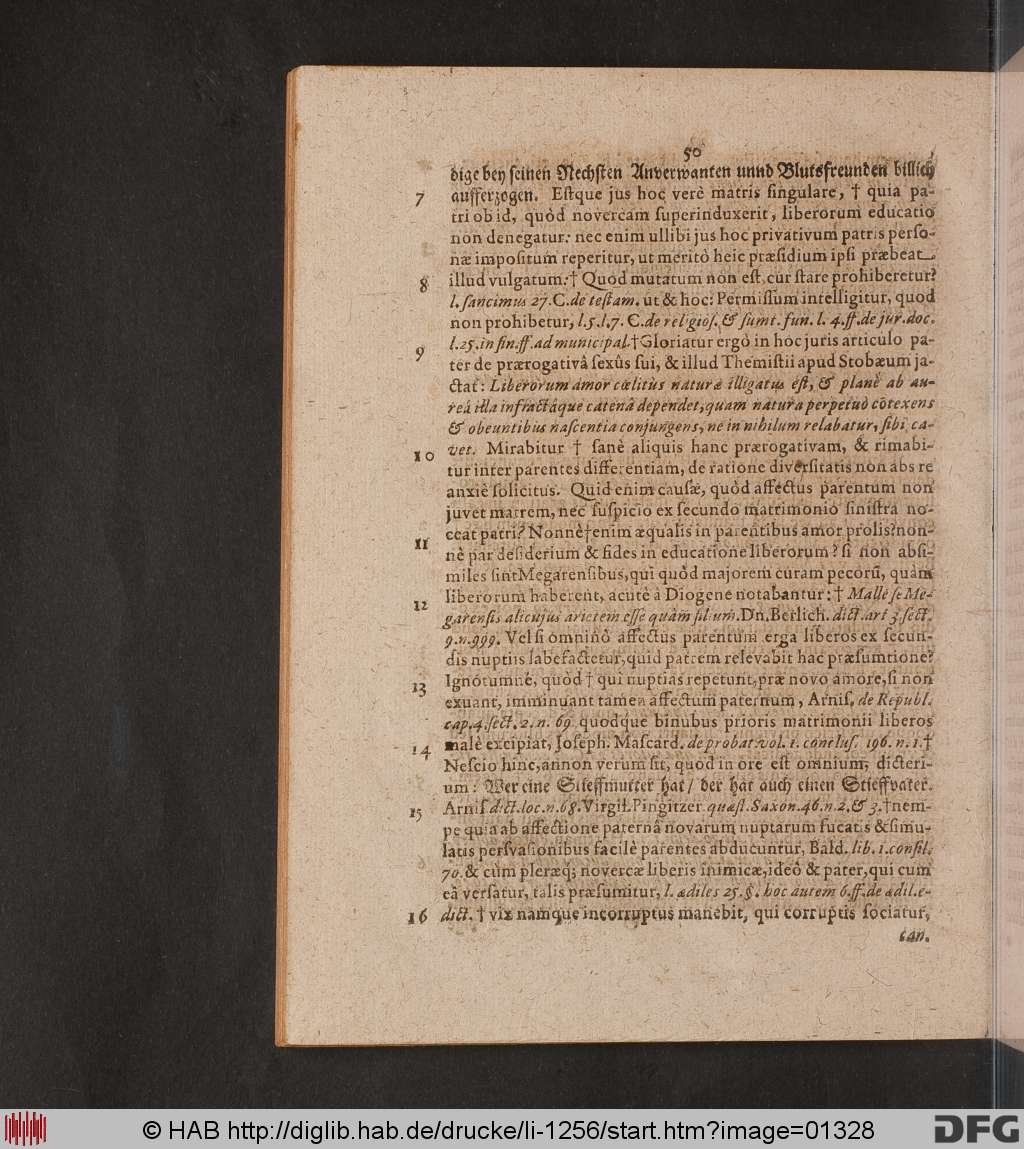 50
dige bey seinen Nechsten Anverwanten unnd Blutsfreunden billich
7 aufferzogen. Estque jus hoc verè matris singulare, † quia pa-
tri ob id, quòd novercam superinduxerit, liberorum educatio
non denegatur: nec enim ullibi jus hoc privativum patris perso-
næ impositum reperitur, ut meritò heic præsidium ipsi præbeat
8 illud vulgatum: † Quod mutatum non est, cur stare prohiberetur?
l. sancimus 27. C. de testam. ut & hoc: Permissum intelligitur, quod
non prohibetur, l. 5. l. 7. C. de religios. & sumt. fun. l. 4. ff. de jur. doc.
9 l. 25. in fin. ff. ad municipal. † Gloriatur ergò in hoc juris articulo pa-
ter de prærogativâ sexûs sui, & illud Themistii apud Stobæum ja-
ctat: Liberorum amor cœlitùs naturæ illigatus est, & planè ab au-
reâ illa infractâque catenâ dependet, quam natura perpetuò cōtexens
& obeuntibus nascentia conjungens, ne in nihilum relabatur, sibi ca-
10 vet. Mirabitur † sanè aliquis hanc prærogativam, & rimabi-
tur inter parentes differentiam, de ratione diversitatis non abs re
anxiè solicitus. Quid enim causæ, quòd affectus parentum non
juvet matrem, nec suspicio ex secundo matrimonio sinistra no-
11 ceat patri? Nonnè † enim æqualis in parentibus amor prolis? non-
nè par desiderium & fides in educatione liberorum? si non absi-
miles sint Megarensibus, qui quòd majorem curam pecorũ, quàm
12 liberorum haberent, acutè à Diogene notabantur: † Malle se Me-
garensis alicujus arietem esse quàm filium. Dn. Berlich. dict. art 3. sect.
9. n. 999. Vel si omninò affectus parentum erga liberos ex secun-
dis nuptiis labefactetur, quid patrem relevabit hac præsumtione?
13 Ignotumnè, quòd † qui nuptias repetunt, præ novo amore, si non
exuant, imminuant tamen affectum paternum, Arnis. de Republ.
cap. 4. sect. 2. n. 69. quodque binubus prioris matrimonii liberos
14 malè excipiat, Joseph. Mascard. de probat. vol. 1. conclus. 196. n. 1. †
Nescio hinc, annon verum sit, quod in ore est omnium, dicteri-
um: Wer eine Stieffmutter hat / der hat auch einen Stieffvater.
15 Arnis dict. loc. n. 68. Virgil. Pingitzer quæst. Saxon. 46. n. 2. & 3. † nem-
pe quia ab affectione paternâ novarum nuptarum fucatis & simu-
latis persvasionibus facilè parentes abducuntur, Bald. lib. 1. consil.
70. & cùm pleræq; novercæ liberis inimicæ, ideò & pater, qui cum
eâ versatur, talis præsumitur, l. ædiles 25. §. hoc autem 6. ff. de ædil. e-
16 dict. † vix namque incorruptus manebit, qui corruptis sociatur,
tan.
© HAB http://diglib.hab.de/drucke/li-1256/start.htm?image=01328
DFG